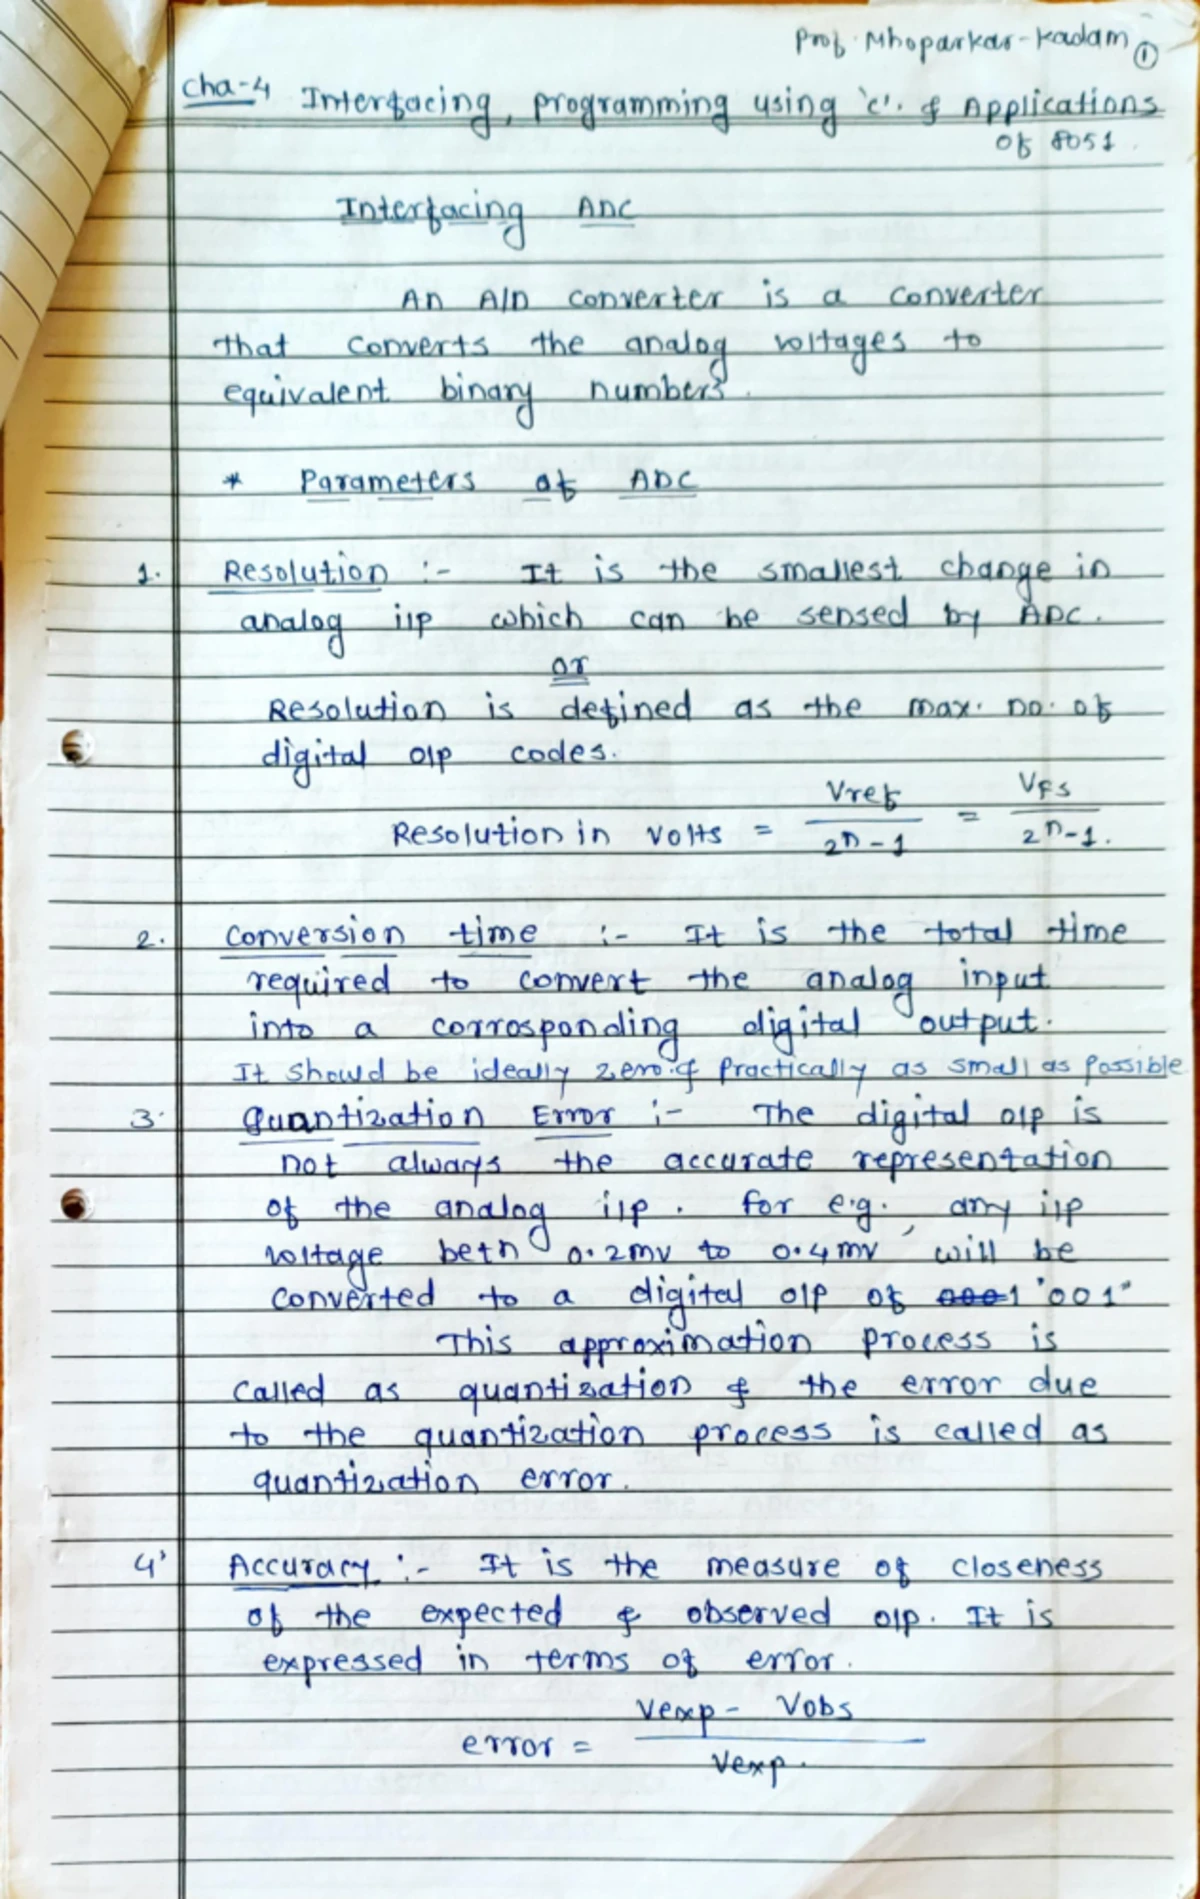 Prof. Mhoparkar-Kadam ①
Cha-4 Interfacing, programming using 'c'. & Applications
of 8051.
Interfacing ADC
An A/D converter is a converter
that converts the analog voltages to
equivalent binary numbers.
* Parameters of ADC
1. Resolution :- It is the smallest change in
analog i/p which can be sensed by ADC.
or
Resolution is defined as the max. no. of
digital o/p codes.
Resolution in volts = Vref / 2ⁿ-1 = VFS / 2ⁿ-1.
2. Conversion time :- It is the total time
required to convert the analog input
into a corrosponding digital output.
It should be ideally zero & practically as small as possible
3. Quantization Error :- The digital o/p is
not always the accurate representation
of the analog i/p. for e.g., any i/p
voltage betn 0.2mv to 0.4mv will be
converted to a digital o/p of 0001 "001"
This approximation process is
called as quantization & the error due
to the quantization process is called as
quantization error.
4. Accuracy :- It is the measure of closeness
of the expected & observed o/p. It is
expressed in terms of error.
error = Vexp - Vobs / Vexp.